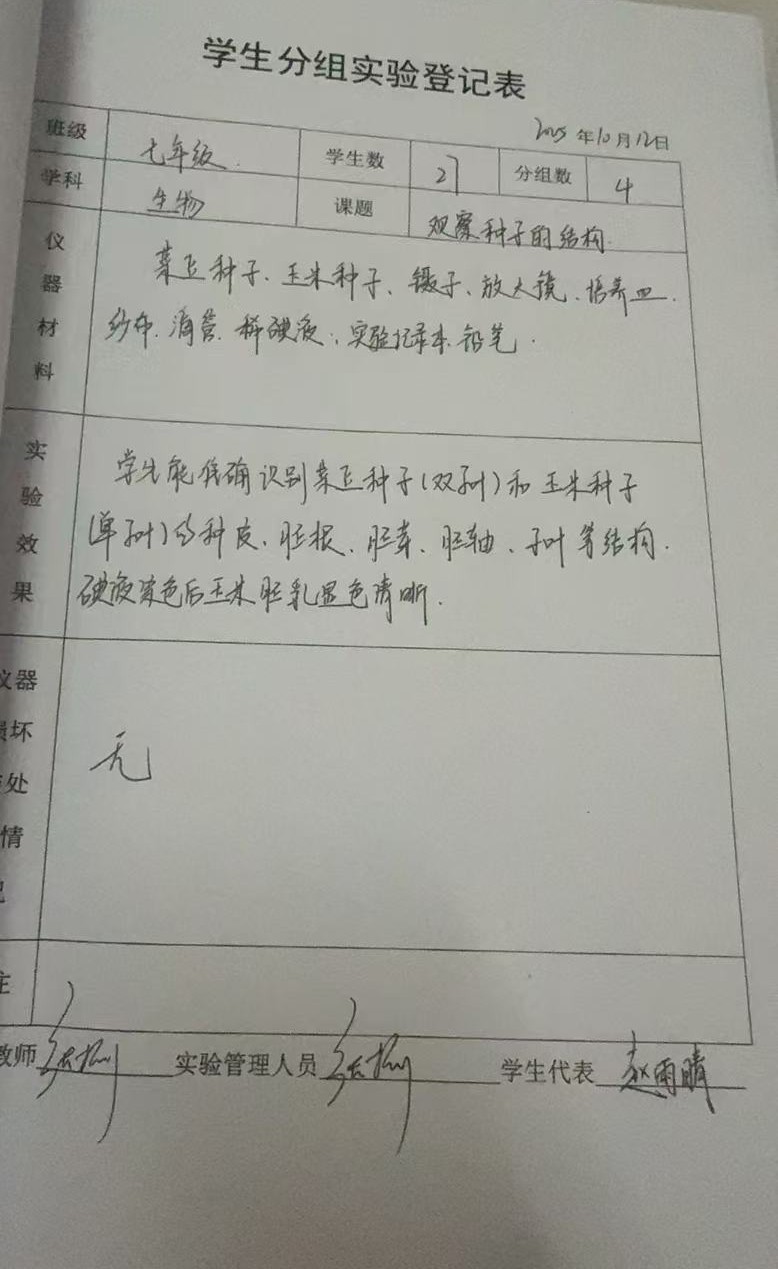 学生分组实验登记表
2025年10月12日
班级 七年级 学生数 27 分组数 4
学科 生物 课题 观察种子的结构
仪器材料
菜豆种子、玉米种子、镊子、放大镜、培养皿、
纱布、滴管、稀碘液、实验记录本、铅笔.
实验效果
学生能准确识别菜豆种子(双子叶)和玉米种子
(单子叶)的种皮、胚根、胚芽、胚轴、子叶等结构.
碘液染色后玉米胚乳显色清晰.
仪器
损坏
处
情
无
注
教师 实验管理人员 学生代表 赵雨晴